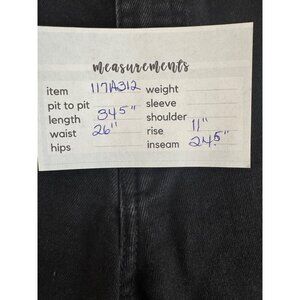 measurements
item 117A312 weight
pit to pit sleeve
length 34.5" shoulder
waist 26" rise 11"
hips inseam 24.5"